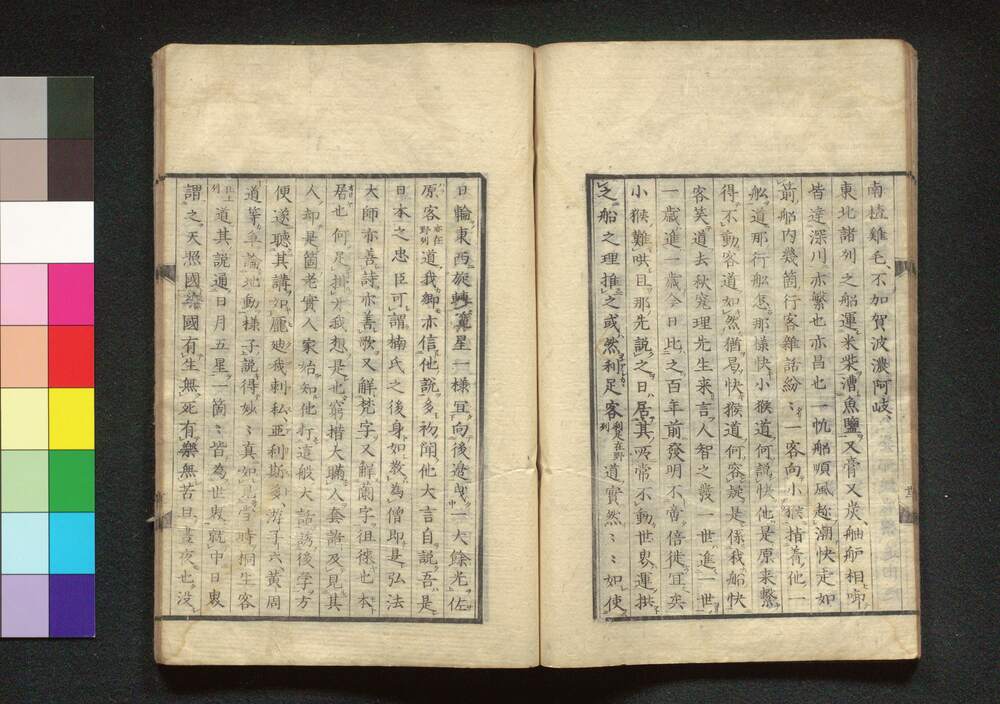 南楂雞毛不加賀波濃阿岐
東北諸列之船運米柴漕魚鹽又膏又炭舳舮相啣
皆達深川亦繁也亦昌也一帆船順風趂潮快走如
前船内幾箇行客雜話紛〻一客向小猴揹着他一
舩道那行船怎那樣快小猴道何説快他是原來繋
得不動客道如然猶易快猴道何容疑是係我船快
客笑道去秋窮理先生来言人智之發一世進一世
一歳進一歳今日比之百年前發明不啻倍徙宜矣
小猴難哄且那先説之日居其所常不動世界運拱
之船之理推之或然利足客利足在野列道實然〻〻如使
日輪東西旋轉寛星一樣宜向後邊曳一大餘光佐
原客亦在野列道我鄉亦信他説多初聞他大言自説吾是
日本之忠臣可謂楠氏之後身如教為僧即是弘法
大師亦善詩亦善歌又解梵字又解蘭字徂徠也本
居也何足掛歯我想是也窮措大瞞人套語及見其
人却是箇老實人家始知他打這般大話誘後学方
便遂聽其講如龎廸我剌私亜利斯多游子六黄周
道等車論地動樣子説得妙〻真如見当時桐生客
上列道其説通日月五星一箇〻皆為世界就中日界
謂之天照國樂國有生無死有樂無苦旦晝夜也没